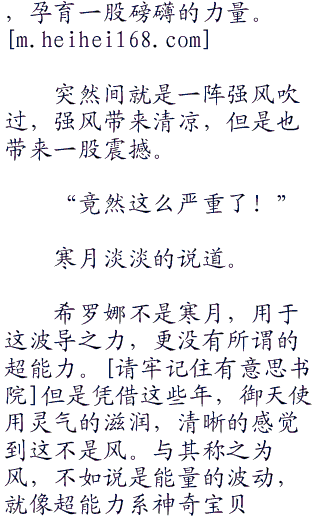 ，孕育一股磅礴的力量。
[m.heihei168.com]
突然间就是一阵强风吹
过，强风带来清凉，但是也
带来一股震撼。
“竟然这么严重了！”
寒月淡淡的说道。
希罗娜不是寒月，用于
这波导之力，更没有所谓的
超能力。[请牢记住有意思书
院]但是凭借这些年，御天使
用灵气的滋润，清晰的感觉
到这不是风。与其称之为
风，不如说是能量的波动，
就像超能力系神奇宝贝